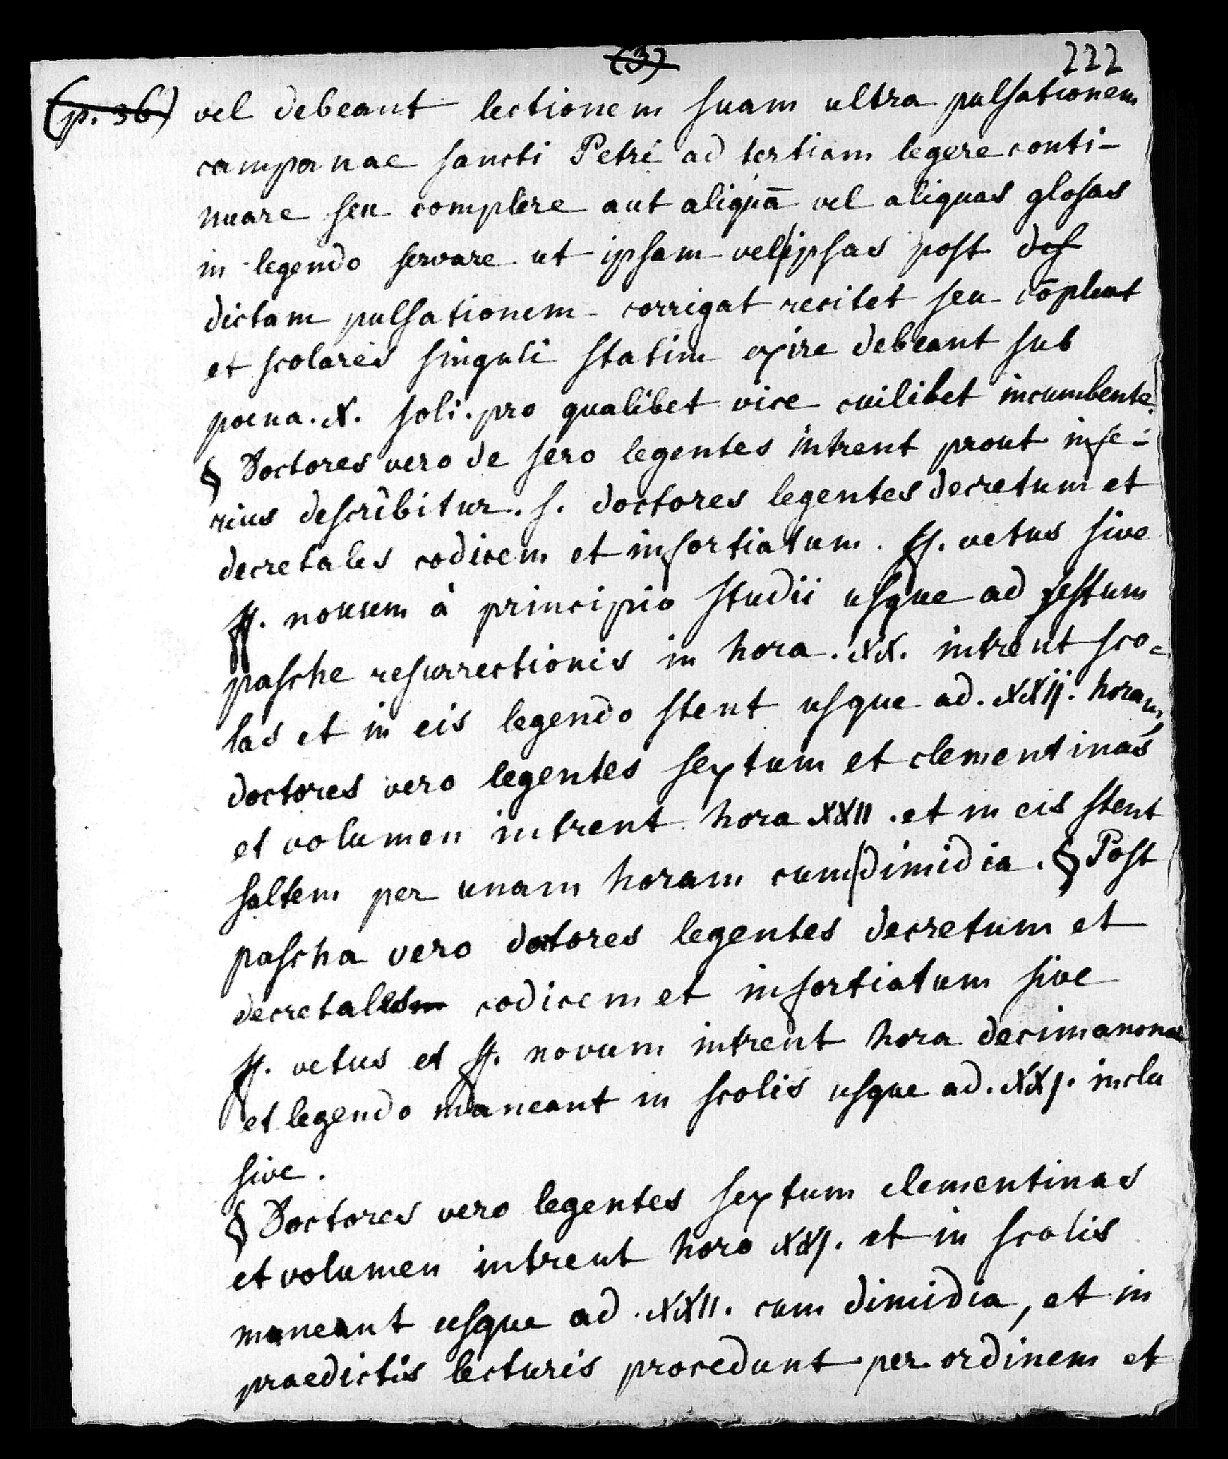 (3)
222
(p. 36) vel debeant lectionem suam ultra pulsationem
campanae sancti Petri ad tertiam legere conti-
nuare seu complere aut aliquā vel aliquas glosas
in legendo servare ut ipsam vel ipsas post des
dictam pulsationem corrigat recitet seu cōpleat
et scolares singuli statim exire debeant sub
poena .X. soli. pro qualibet vice cuilibet incumbente.
§ Doctores vero de sero legentes intrent prout infe-
rius describitur. s. doctores legentes decretum et
decretales codicem et infortiatum. ff. vetus sive
ff. novum à principio studii usque ad festum
pasche resurrectionis in hora .XX. intrent sco-
las et in eis legendo stent usque ad .XXIj. horam,
doctores vero legentes sextum et clementinas
et volumen intrent hora XXII. et in eis stent
saltem per unam horam cum dimidia. § Post
pascha vero doctores legentes decretum et
decretales codicem et infortiatum sive
ff. vetus et ff. novum intrent hora decimanona
et legendo maneant in scolis usque ad .XXj. inclu
sive.
§ Doctores vero legentes sextum clementinas
et volumen intrent hora XXj. et in scolis
maneant usque ad .XXII. cum dimidia, et in
praedictis lecturis procedunt per ordinem et